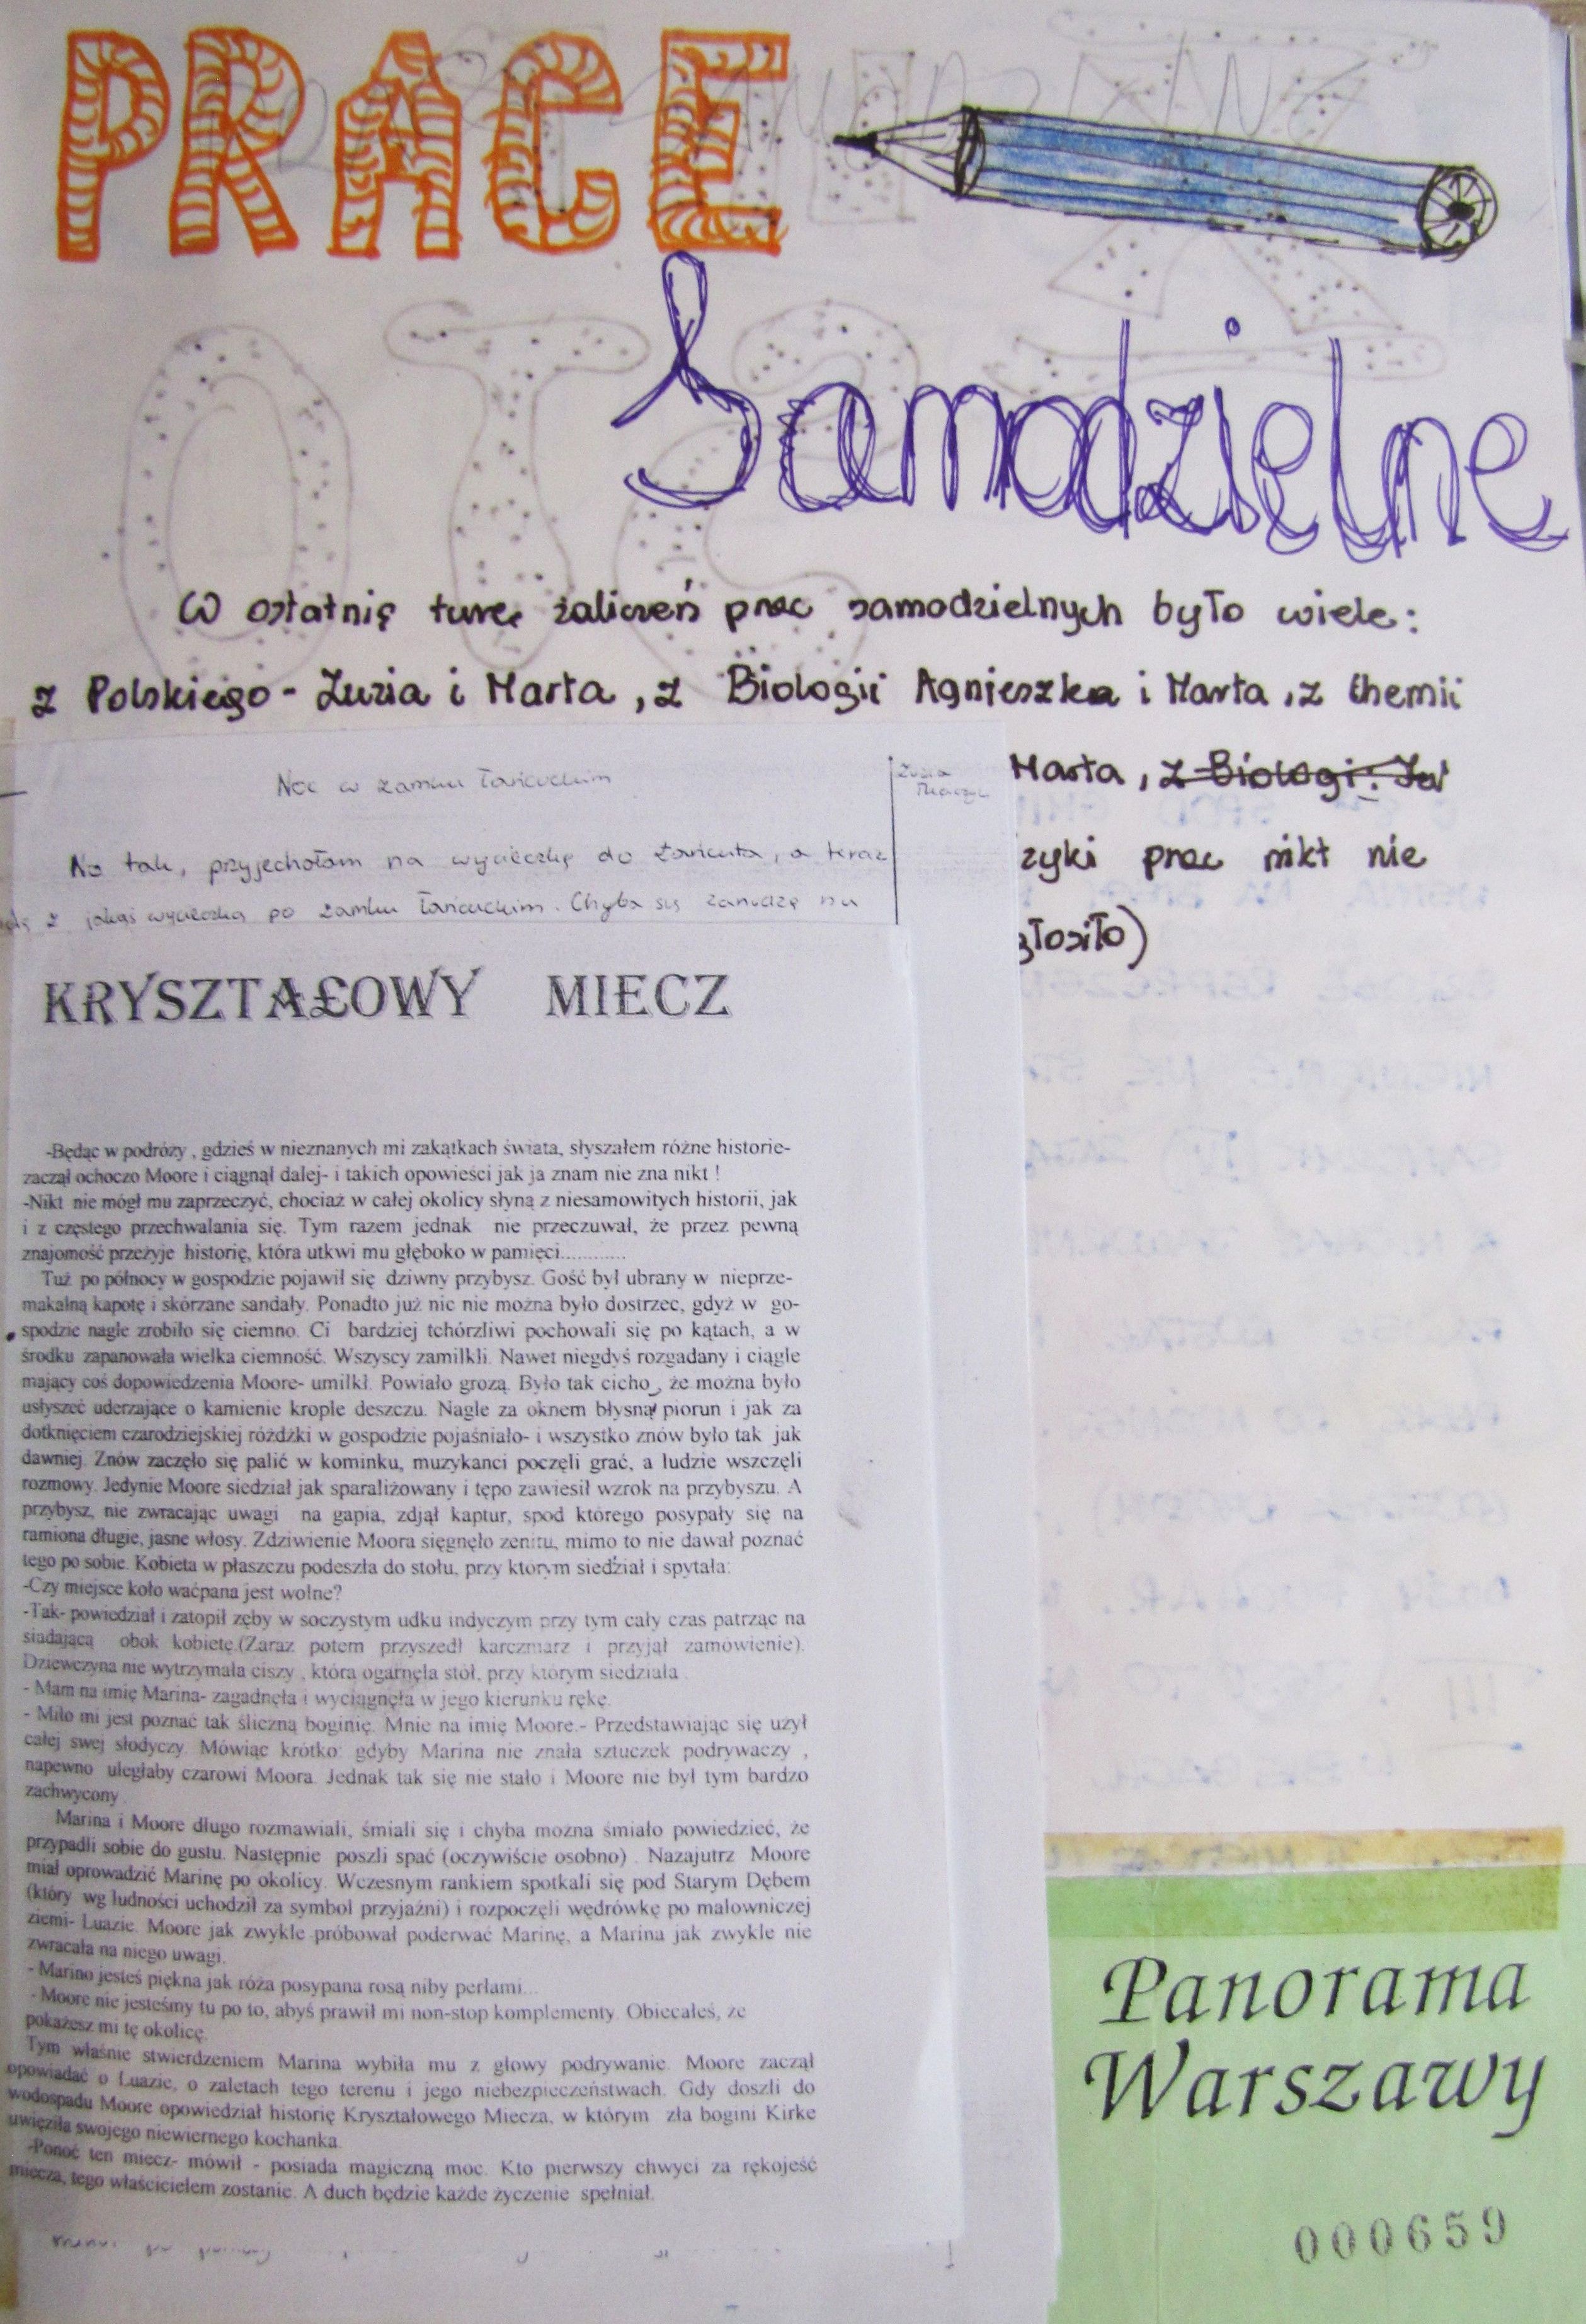 PRACE
Samodzielne
W ostatnię turę zaliczeń prac samodzielnych było wiele:
z Polskiego - Zuzia i Marta, z Biologii Agnieszka i Marta, z Chemii
Marta, z Biologi:
zyki prac nikt nie
głosiło)
Noc w zamku łańcuckim
Zuzia
No tak, przyjechałam na wycieczkę do Łańcuta, a teraz
z jakąś wycieczką po zamku łańcuckim. Chyba się zanudzę na
KRYSZTA£OWY MIECZ
-Będąc w podróży , gdzieś w nieznanych mi zakątkach świata, słyszałem różne historie-
zaczął ochoczo Moore i ciągnął dalej- i takich opowieści jak ja znam nie zna nikt !
-Nikt nie mógł mu zaprzeczyć, chociaż w całej okolicy słyną z niesamowitych historii, jak
i z częstego przechwalania się. Tym razem jednak nie przeczuwał, że przez pewną
znajomość przeżyje historię, która utkwi mu głęboko w pamięci............
Tuż po północy w gospodzie pojawił się dziwny przybysz. Gość był ubrany w nieprze-
makalną kapotę i skórzane sandały. Ponadto już nic nie można było dostrzec, gdyż w go-
spodzie nagle zrobiło się ciemno. Ci bardziej tchórzliwi pochowali się po kątach, a w
środku zapanowała wielka ciemność. Wszyscy zamilkli. Nawet niegdyś rozgadany i ciągle
mający coś dopowiedzenia Moore- umilkł. Powiało grozą. Było tak cicho , że można było
usłyszeć uderzające o kamienie krople deszczu. Nagle za oknem błysnął piorun i jak za
dotknięciem czarodziejskiej różdżki w gospodzie pojaśniało- i wszystko znów było tak jak
dawniej. Znów zaczęło się palić w kominku, muzykanci poczęli grać, a ludzie wszczęli
rozmowy. Jedynie Moore siedział jak sparaliżowany i tępo zawiesił wzrok na przybyszu. A
przybysz, nie zwracając uwagi na gapia, zdjął kaptur, spod którego posypały się na
ramiona długie, jasne włosy. Zdziwienie Moora sięgnęło zenitu, mimo to nie dawał poznać
tego po sobie. Kobieta w płaszczu podeszła do stołu, przy którym siedział i spytała:
-Czy miejsce koło waćpana jest wolne?
-Tak- powiedział i zatopił zęby w soczystym udku indyczym przy tym cały czas patrząc na
siadającą obok kobietę.(Zaraz potem przyszedł karczmarz i przyjął zamówienie).
Dziewczyna nie wytrzymała ciszy , która ogarnęła stół, przy którym siedziała .
- Mam na imię Marina- zagadnęła i wyciągnęła w jego kierunku rękę.
- Miło mi jest poznać tak śliczną boginię. Mnie na imię Moore.- Przedstawiając się użył
całej swej słodyczy. Mówiąc krótko: gdyby Marina nie znała sztuczek podrywaczy ,
napewno uległaby czarowi Moora. Jednak tak się nie stało i Moore nie był tym bardzo
zachwycony .
Marina i Moore długo rozmawiali, śmiali się i chyba można śmiało powiedzieć, że
przypadli sobie do gustu. Następnie poszli spać (oczywiście osobno) . Nazajutrz Moore
miał oprowadzić Marinę po okolicy. Wczesnym rankiem spotkali się pod Starym Dębem
(który wg ludności uchodził za symbol przyjaźni) i rozpoczęli wędrówkę po malowniczej
ziemi- Luazie. Moore jak zwykle próbował poderwać Marinę, a Marina jak zwykle nie
zwracała na niego uwagi.
- Marino jesteś piękna jak róża posypana rosą niby perłami...
- Moore nie jesteśmy tu po to, abyś prawił mi non-stop komplementy. Obiecałeś, że
pokażesz mi tę okolicę.
Tym właśnie stwierdzeniem Marina wybiła mu z głowy podrywanie. Moore zaczął
opowiadać o Luazie, o zaletach tego terenu i jego niebezpieczeństwach. Gdy doszli do
wodospadu Moore opowiedział historię Kryształowego Miecza, w którym zła bogini Kirke
uwięziła swojego niewiernego kochanka.
-Ponoć ten miecz- mówił - posiada magiczną moc. Kto pierwszy chwyci za rękojeść
miecza, tego właścicielem zostanie. A duch będzie każde życzenie spełniał.
Panorama
Warszawy
000659